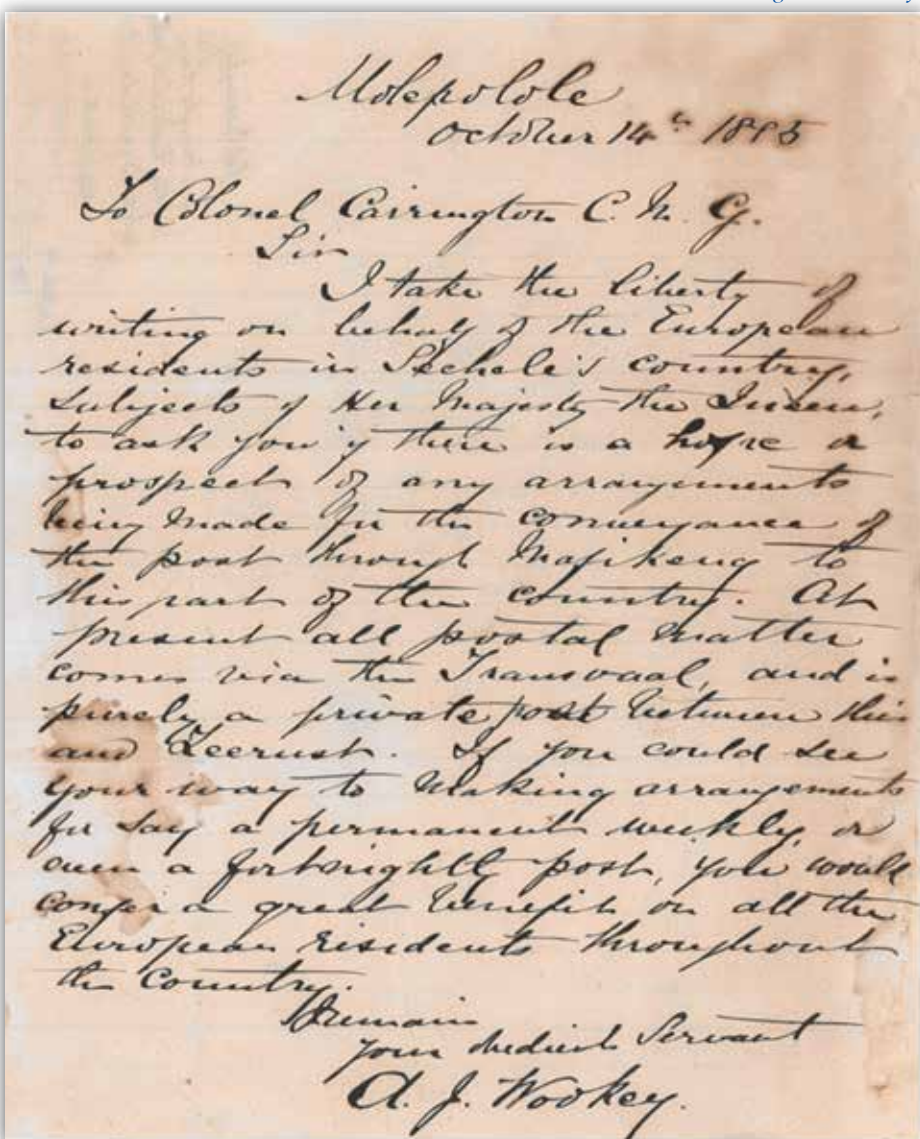 Molepolole
October 14th 1885
To Colonel Carrington C. M. G.
Sir
I take the liberty of
writing on behalf of the European
residents in Sechele's country,
subjects of Her Majesty the Queen,
to ask you if there is a hope or
prospect of any arrangements
being made for the conveyance of
the post through Mafikeng to
this part of the country. At
present all postal matter
comes via the Transvaal, and is
purely a private post between this
and Zeerust. If you could see
your way to making arrangements
for say a permanent weekly, or
even a fortnightly post, you would
confer a great benefit on all the
European residents throughout
the country.
I remain
your obedient Servant
A. J. Wookey.